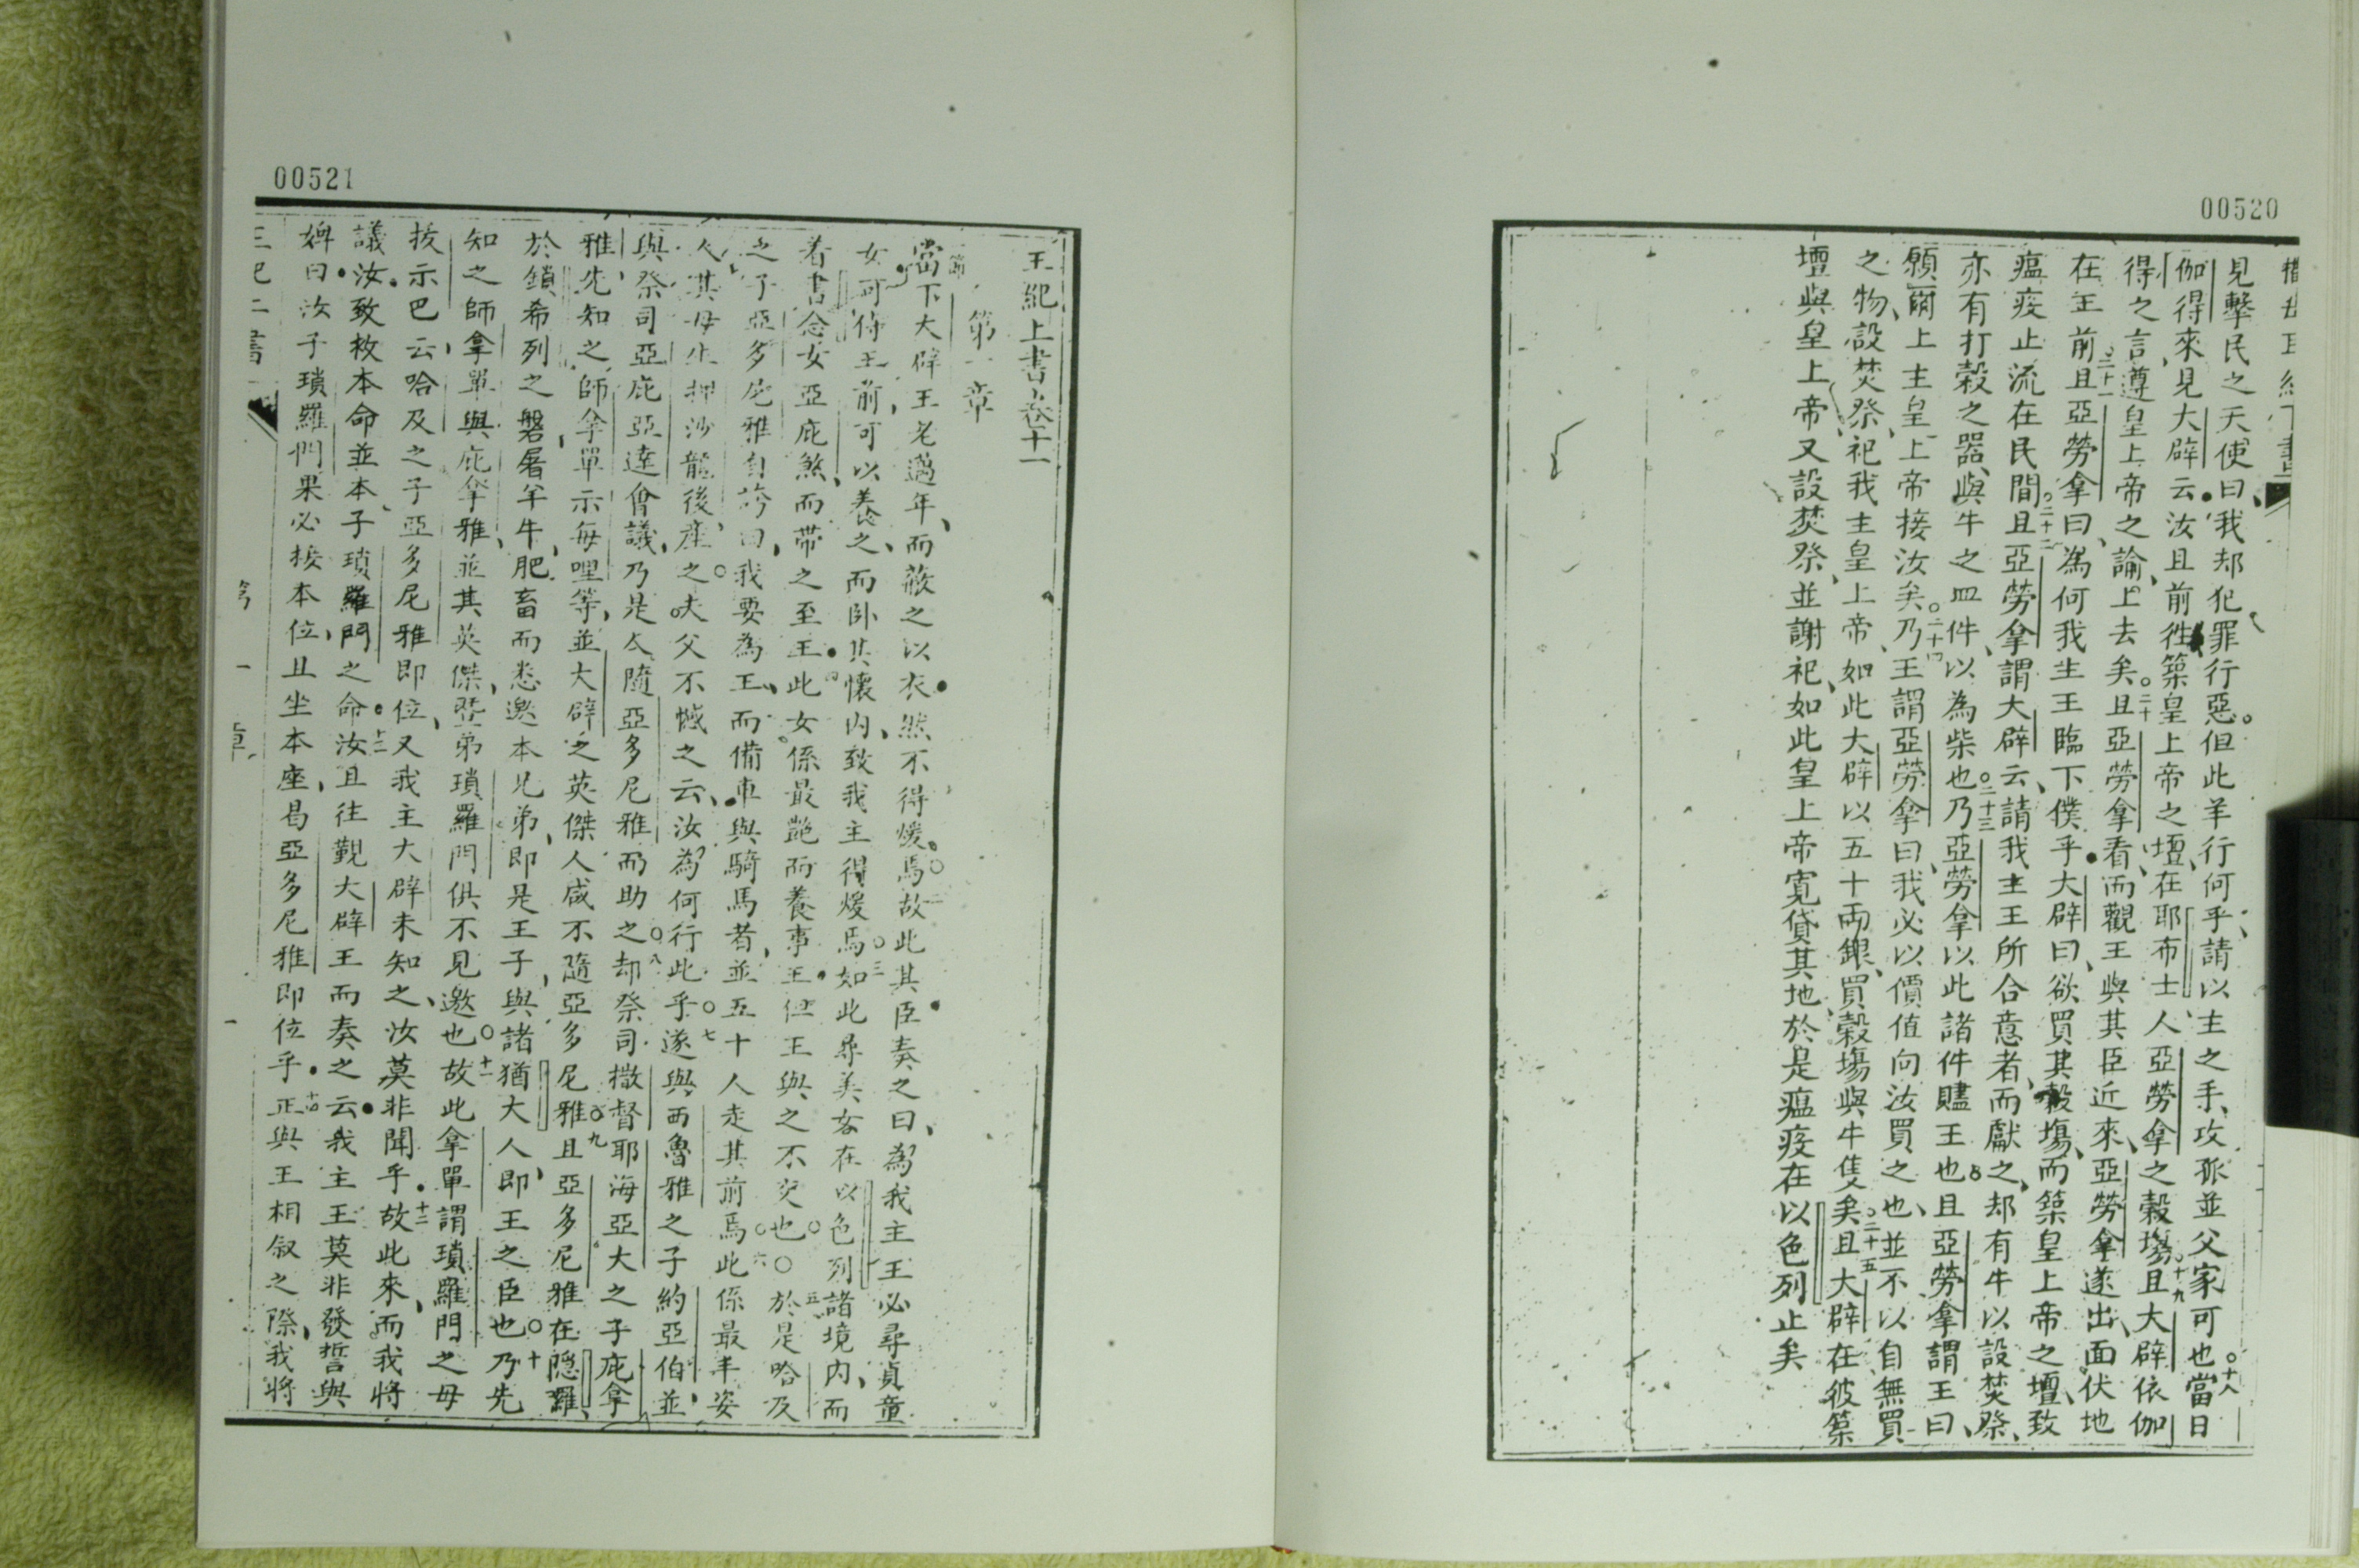 00520
見擊民之天使曰、我却犯罪行惡。但此羊行何乎、請以主之手、攻孤並父家可也○十八當日
伽得來見大辟云汝且前徃築皇上帝之壇、在耶布士人亞勞拿之穀塲○十九且大辟依伽
得之言、遵皇上帝之諭、上去矣○二十且亞勞拿看、而觀王與其臣近來、亞勞拿遂出、面伏地
在王前○二十一且亞勞拿曰、為何我主王臨下僕乎大辟曰、欲買其穀塲、而築皇上帝之壇、致
瘟疫止流在民間○二十二且亞勞拿謂大辟云請我主王所合意者、而獻之、却有牛以設焚祭、
亦有打穀之器、與牛之皿件、以為柴也○二十三乃亞勞拿以此諸件贐王也且亞勞拿謂王曰、
願爾上主皇上帝接汝矣○二十四乃王謂亞勞拿曰、我必以價值向汝買之也、並不以自無買
之物、設焚祭、祀我主皇上帝、如此大辟以五十兩銀、買穀塲與牛隻矣○二十五且大辟在彼築
壇與皇上帝、又設焚祭、並謝祀、如此皇上帝寬貸其地、於是瘟疫在以色列止矣
00521
王紀上書卷十一
第一章
節當下大辟王老邁年、而蔽之以衣、然不得煖焉○二故此其臣奏之曰、為我主王必尋貞童
女可侍王前、可以養之、而卧其懷内、致我主得煖焉○三如此尋美女在以色列諸境内、而
着書念女亞庇煞、而帶之至王○四此女係最艷而養事王、但王與之不交也○五○於是哈及
之子亞多尼雅自誇曰、我要為王、而備車與騎馬者、並五十人走其前焉○六此係最丰姿
人其母生押沙龍後產之○夫父不憾之云、汝為何行此乎○七遂與西魯雅之子約亞伯並
與祭司亞庇亞達會議、乃是人隨亞多尼雅而助之○八却祭司撒督耶海亞大之子庇拿
雅先知之師拿單示每哩等、並大辟之英傑人咸不隨亞多尼雅○九且亞多尼雅在隱羅、
於鎖希列之磐、屠羊牛、肥畜而悉邀本兄弟、即是王子、與諸猶大人、即王之臣也○十乃先
知之師拿單與庇拿雅、並其英傑、曁弟瑣羅門俱不見邀也○十一故此拿單謂瑣羅門之母
拔示巴、云哈及之子亞多尼雅即位、又我主大辟未知之、汝莫非聞乎○十二故此來、而我將
議汝、致救本命並本子瑣羅門之命○十三汝且往覲大辟王而奏之云、我主王莫非發誓與
婢曰汝子瑣羅門果必接本位、且坐本座、曷亞多尼雅即位乎○十四正與王相叙之際、我將